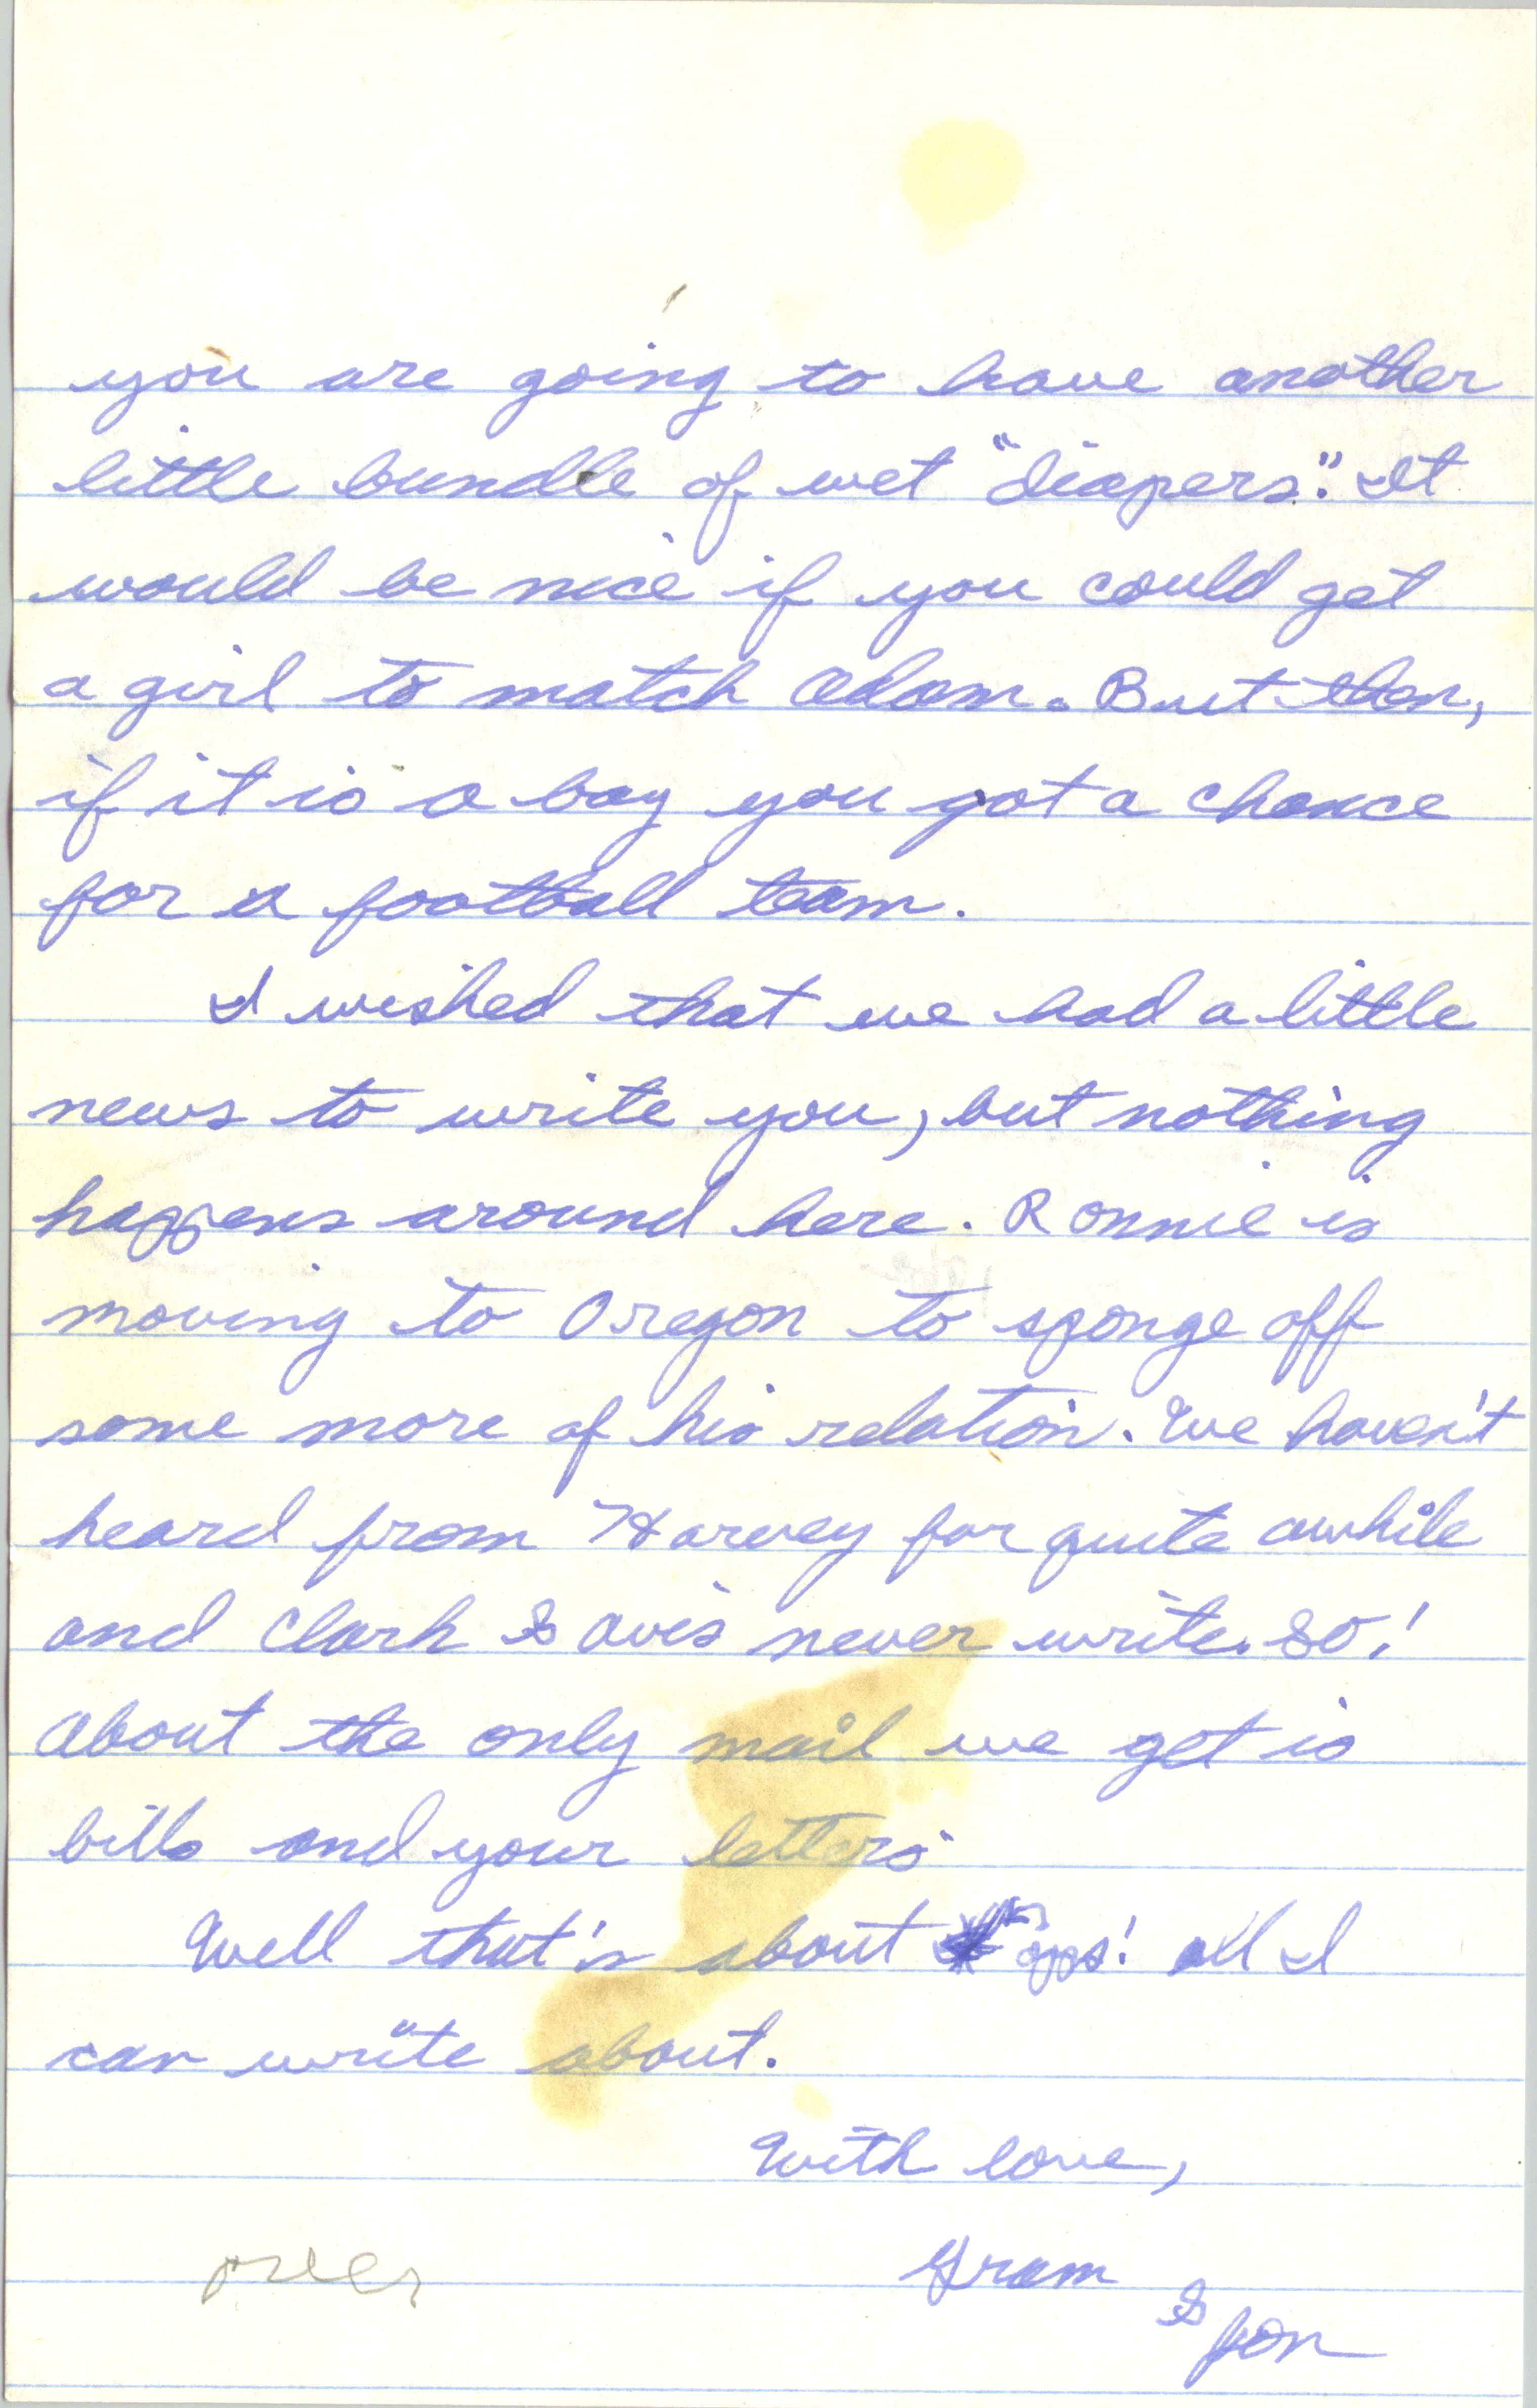 you are going to have another
little bundle of wet "diapers." It
would be nice if you could get
a girl to match Adam. But then,
if it is a boy you got a chance
for a football team.
I wished that we had a little
news to write you, but nothing
happens around here. Ronnie is
moving to Oregon to sponge off
some more of his relation. We haven't
heard from Harvey for quite awhile
and Clark & Avis never write. So!
About the only mail we get is
bills and your letters.
Well that's about opps! all I
can write about.
With love,
Gram
& Jon
over